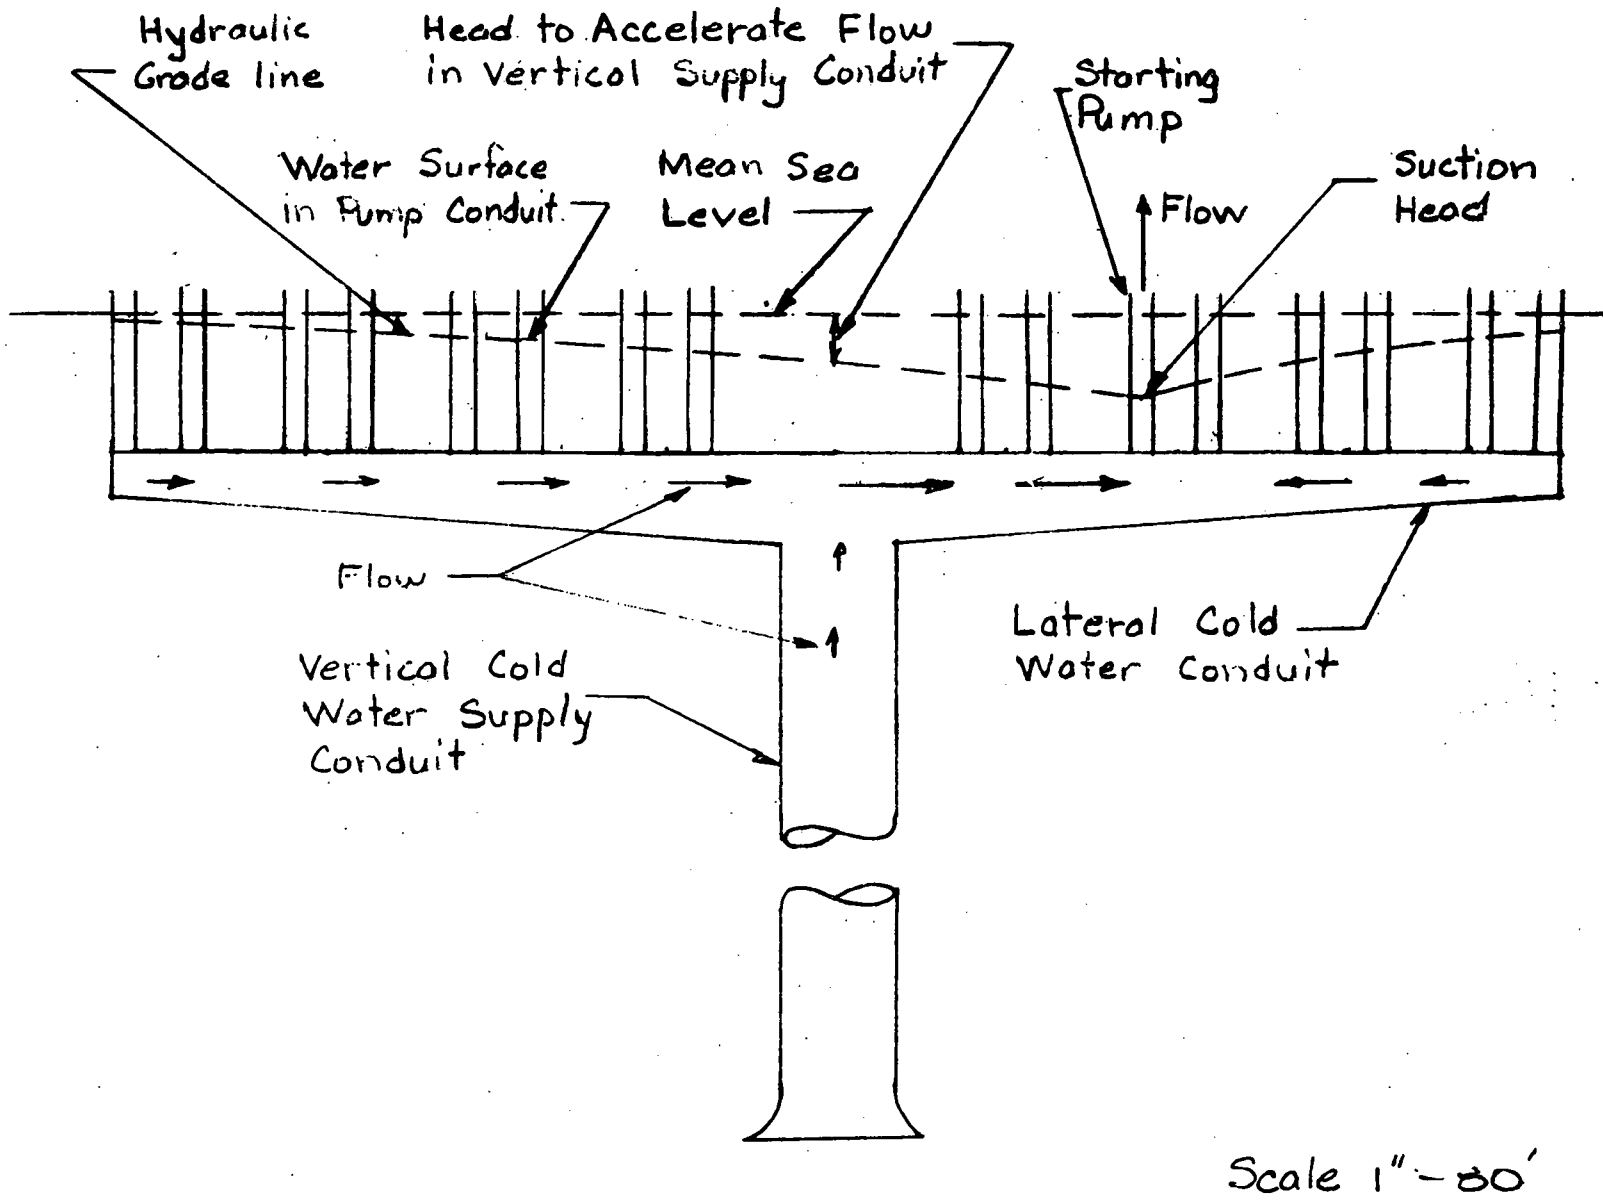 Hydraulic
Grade line
Head to Accelerate Flow
in Vertical Supply Conduit
Starting
Pump
Water Surface
in Pump Conduit
Mean Sea
Level
Flow
Suction
Head
Flow
Vertical Cold
Water Supply
Conduit
Lateral Cold
Water Conduit
Scale 1" -